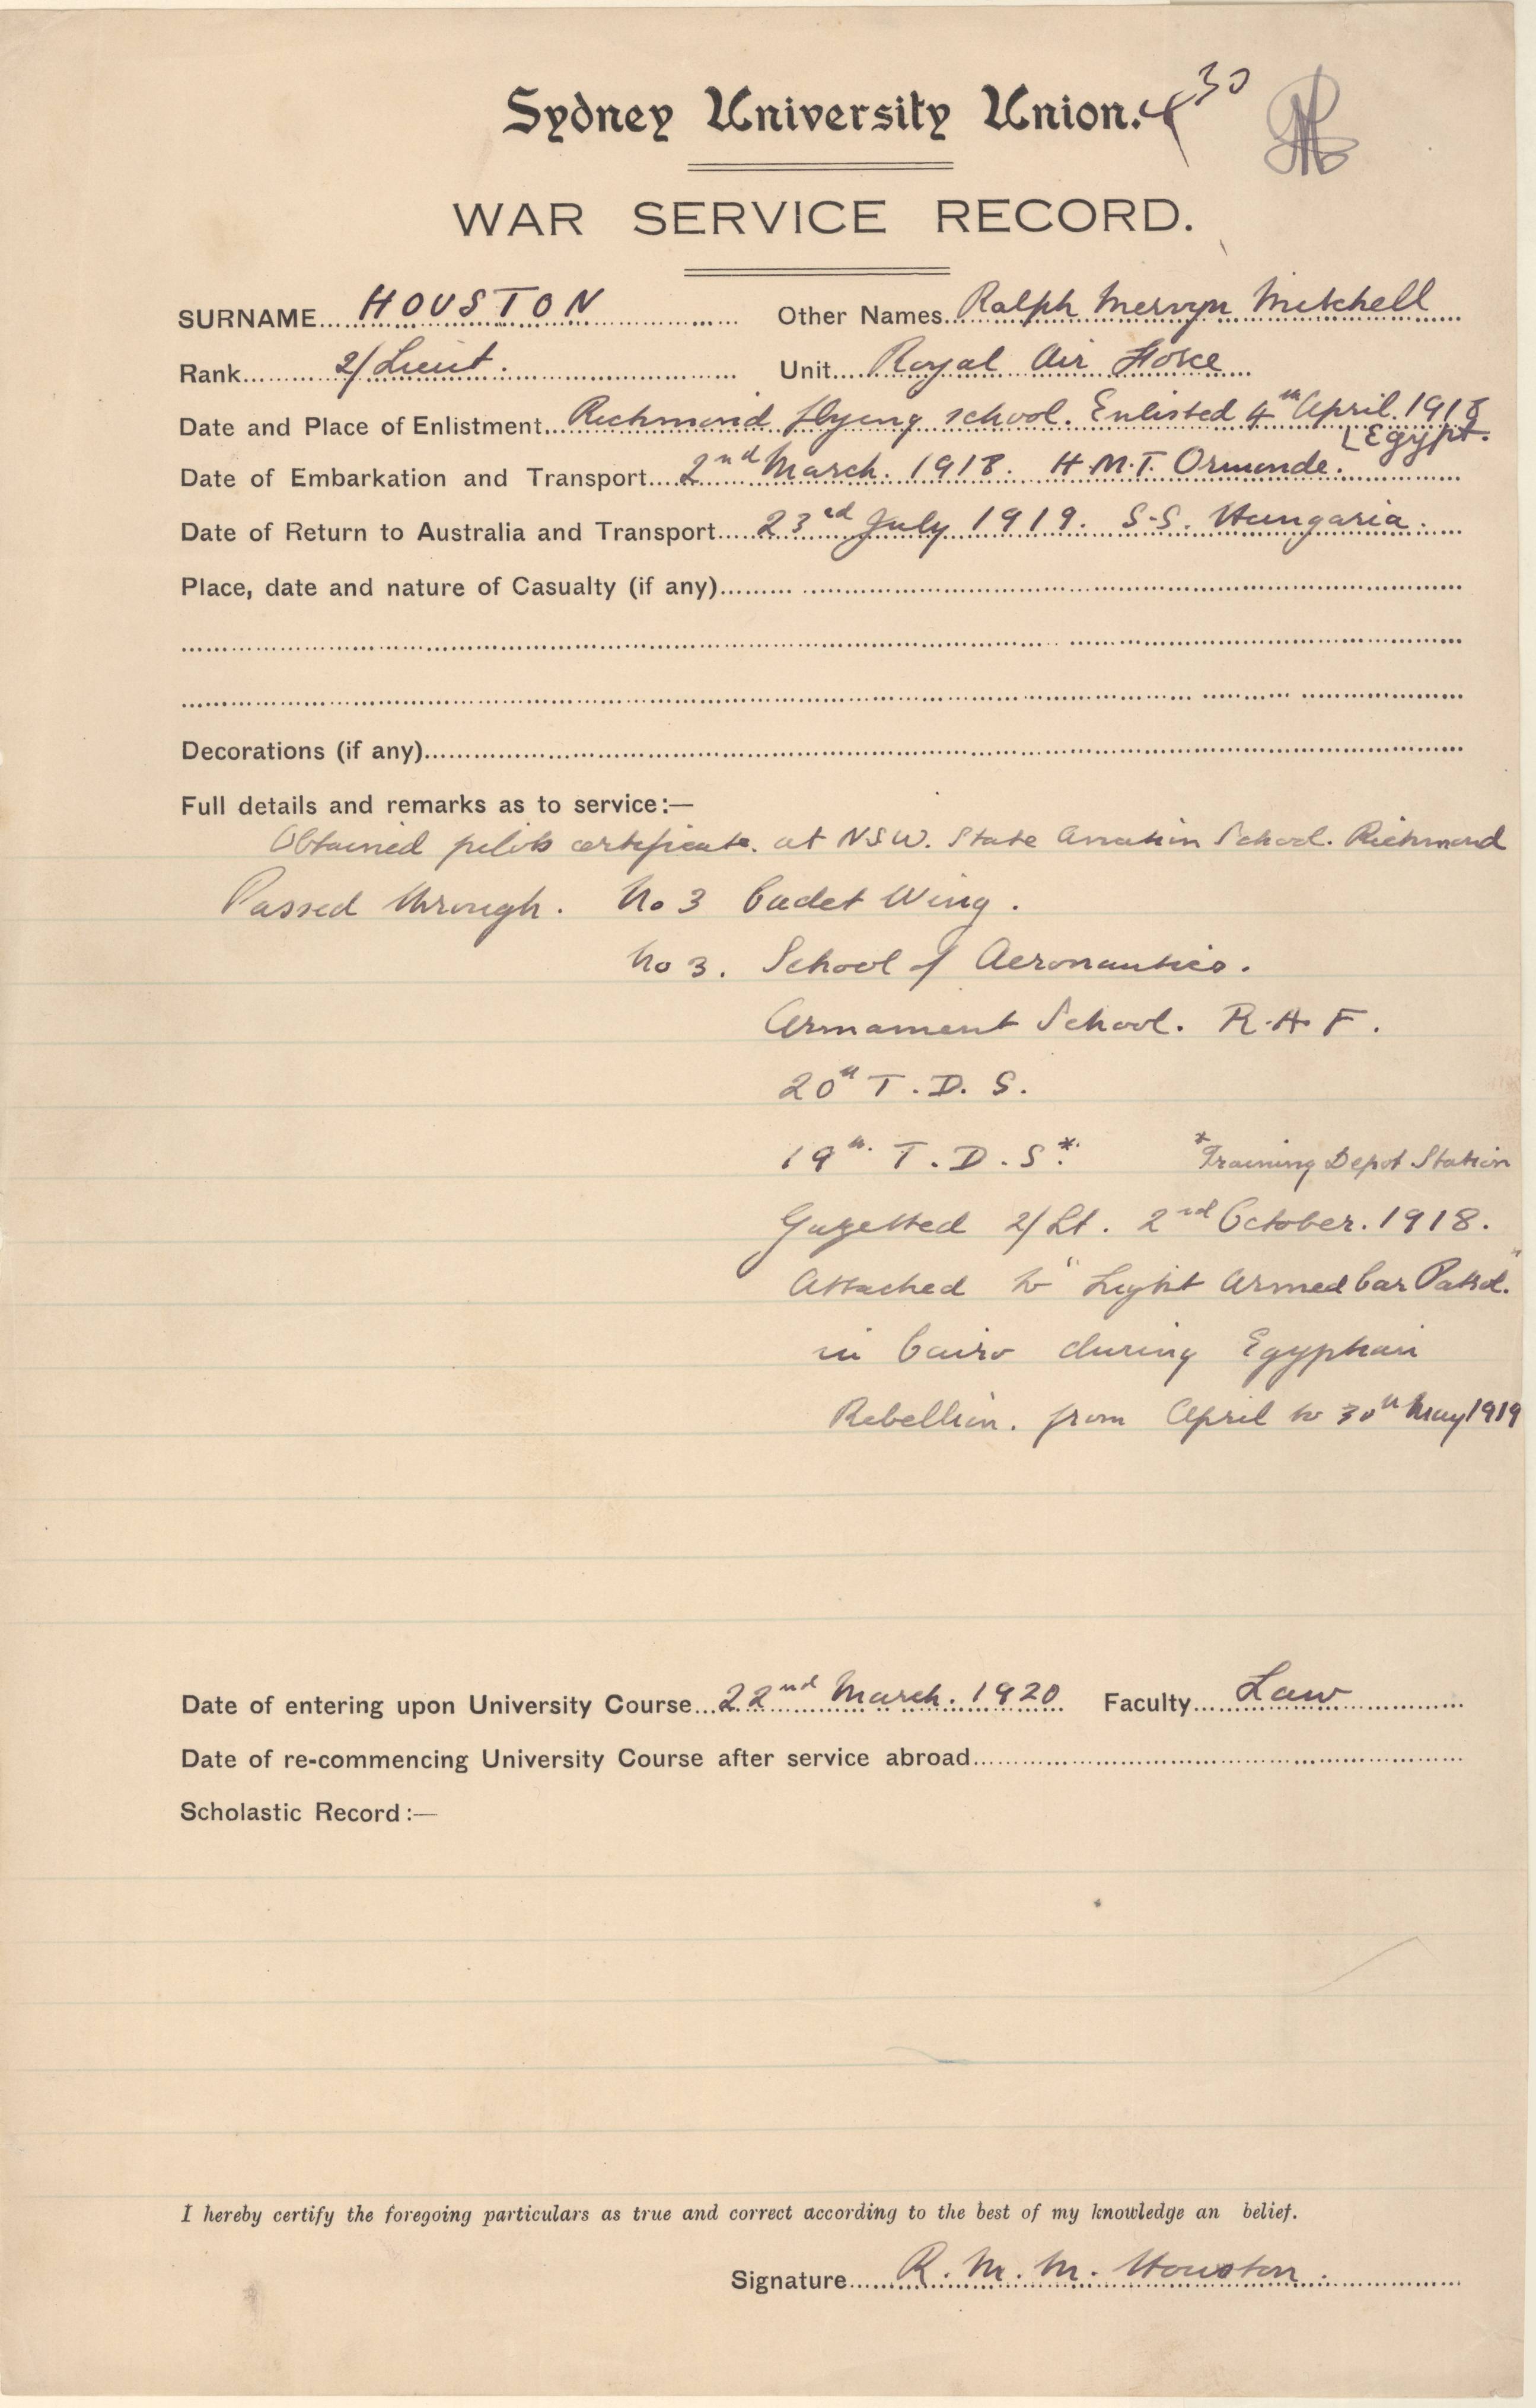 Sydney University Union. 30
WAR SERVICE RECORD.
SURNAME... HOUSTON Other Names... Ralph Mervyn Mitchell
Rank... 2/Lieut. Unit... Royal Air Force
Date and Place of Enlistment... Richmond flying school. Enlisted 4th April. 1918
Egypt.
Date of Embarkation and Transport... 2nd March. 1918. H.M.T. Ormonde.
Date of Return to Australia and Transport... 23rd July 1919. S-S. Hungaria.
Place, date and nature of Casualty (if any)...
Decorations (if any)...
Full details and remarks as to service:—
Obtained pilots certificate. at NSW. State Aviation School. Richmond
Passed through. No 3 Cadet Wing.
No 3. School of Aeronautics.
Armament School. R.A.F.
20th T.D.S.
19th. T.D.S.* *Training Depot Station
Gazetted 2/Lt. 2nd October. 1918.
Attached to "Light Armed Car Patrol."
in Cairo during Egyptian
Rebellion. from April to 30th May 1919
Date of entering upon University Course... 22nd March. 1920 Faculty... Law
Date of re-commencing University Course after service abroad...
Scholastic Record:—
I hereby certify the foregoing particulars as true and correct according to the best of my knowledge an belief.
Signature... R. M. M. Houston.